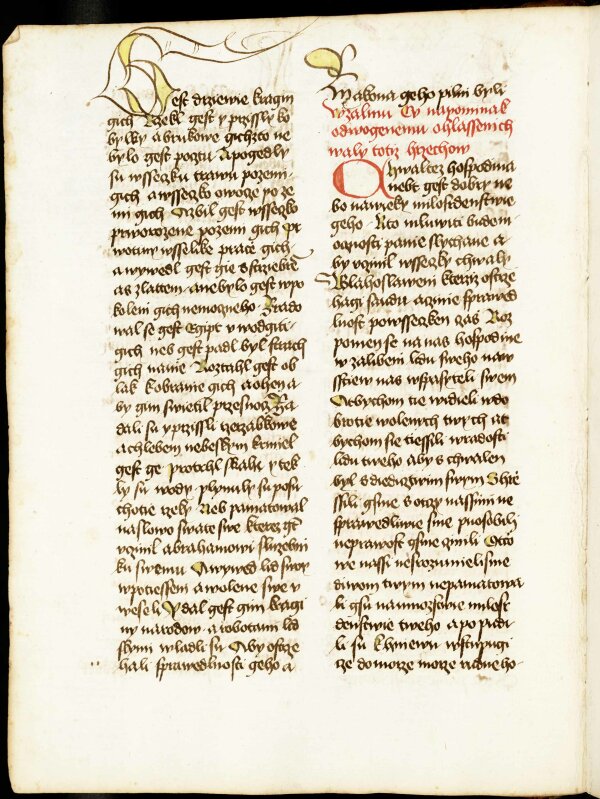 gest drziewie kragin
gich Rzekl gest y przissly ko
bylky a brukowe gichzto ne
bylo gest pocztu Apogedly
su wssczku trawu pozemi
gich awssczko owocze po ze
mi gich Vzbil gest wssczko
prworozene pozemi gich pr
wotiny wsselike pracze gich
awywedl gest gie sstrziebrē
as zlattem anebylo gest wpo
koleni gich nemoczneho Zrado
wal se gest Egipt v wodgiti
gich neb gest padl byl strach
gich nanie Roztahl gest ob
lak kobranie gich aohen a
by gim swietil przesnocz Za
dali su y przissli rzerzabkowe
achlebem nebeskym krmiel
gest ge protrhl skalu y tek
ly su wody plynuly su posu
chotie rzeky Neb pamatowal
naslowo swate swe kterez gt
vczinil abrahamowi sluzebni
ku swemu Awywed lid swoy
wpotiessem awolene swe v
weseli Y dal gest gim kragi
ny narodow arobotami lid
skymi wladli su Aby ostrze
hali sprawedlnosti geho a
Zakona geho pilni byli
wzalmu Cv napominak
odiwogenemu ohlassenich
waly totiz hrziechow
Chwaltez hospodina
nebt gest dobry ne
bo nawieky milosrdenstwie
geho Kto mluwiti budem
ocznosti panie slychane cz
by vczinil wsseczky chwaly
Blahoslaweni kterziz ostrze
hagi saudu aczinie sprawed
lnost powsseczken czas Roz
pomen se na nas hospodine
wzalibeni lidu sweho naw
sstiew nas wspasyteli swem
Abychom tie widieli wdo
brotie wolenych twych at
bychom sie tiessili wradosti
lidu tweho aby s chwalen
byl s diedicztwim swym Shrze
ssili gsme sotczy nassimi ne
sprawedliwie sme puosobili
neprawost gsme czinili Otczo
we nassi nesrozumielisme
diwom twym nepamatowa
li gsu namnozstwie milosr
denstwie tweho apopudi
li su khniewu wstupugi
cze domorze morze rudneho